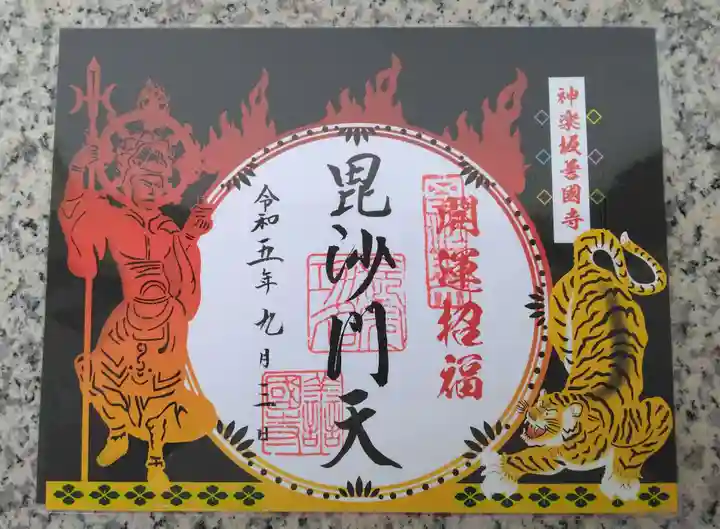 神楽坂善國寺
開運招福
毘沙門天
令和五年九月二日